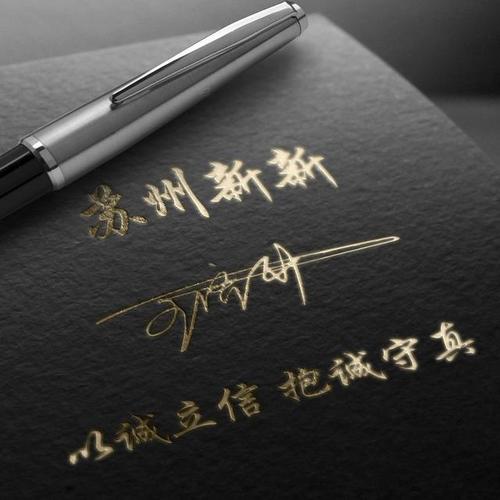 苏州新新
以诚立信 抱诚守真